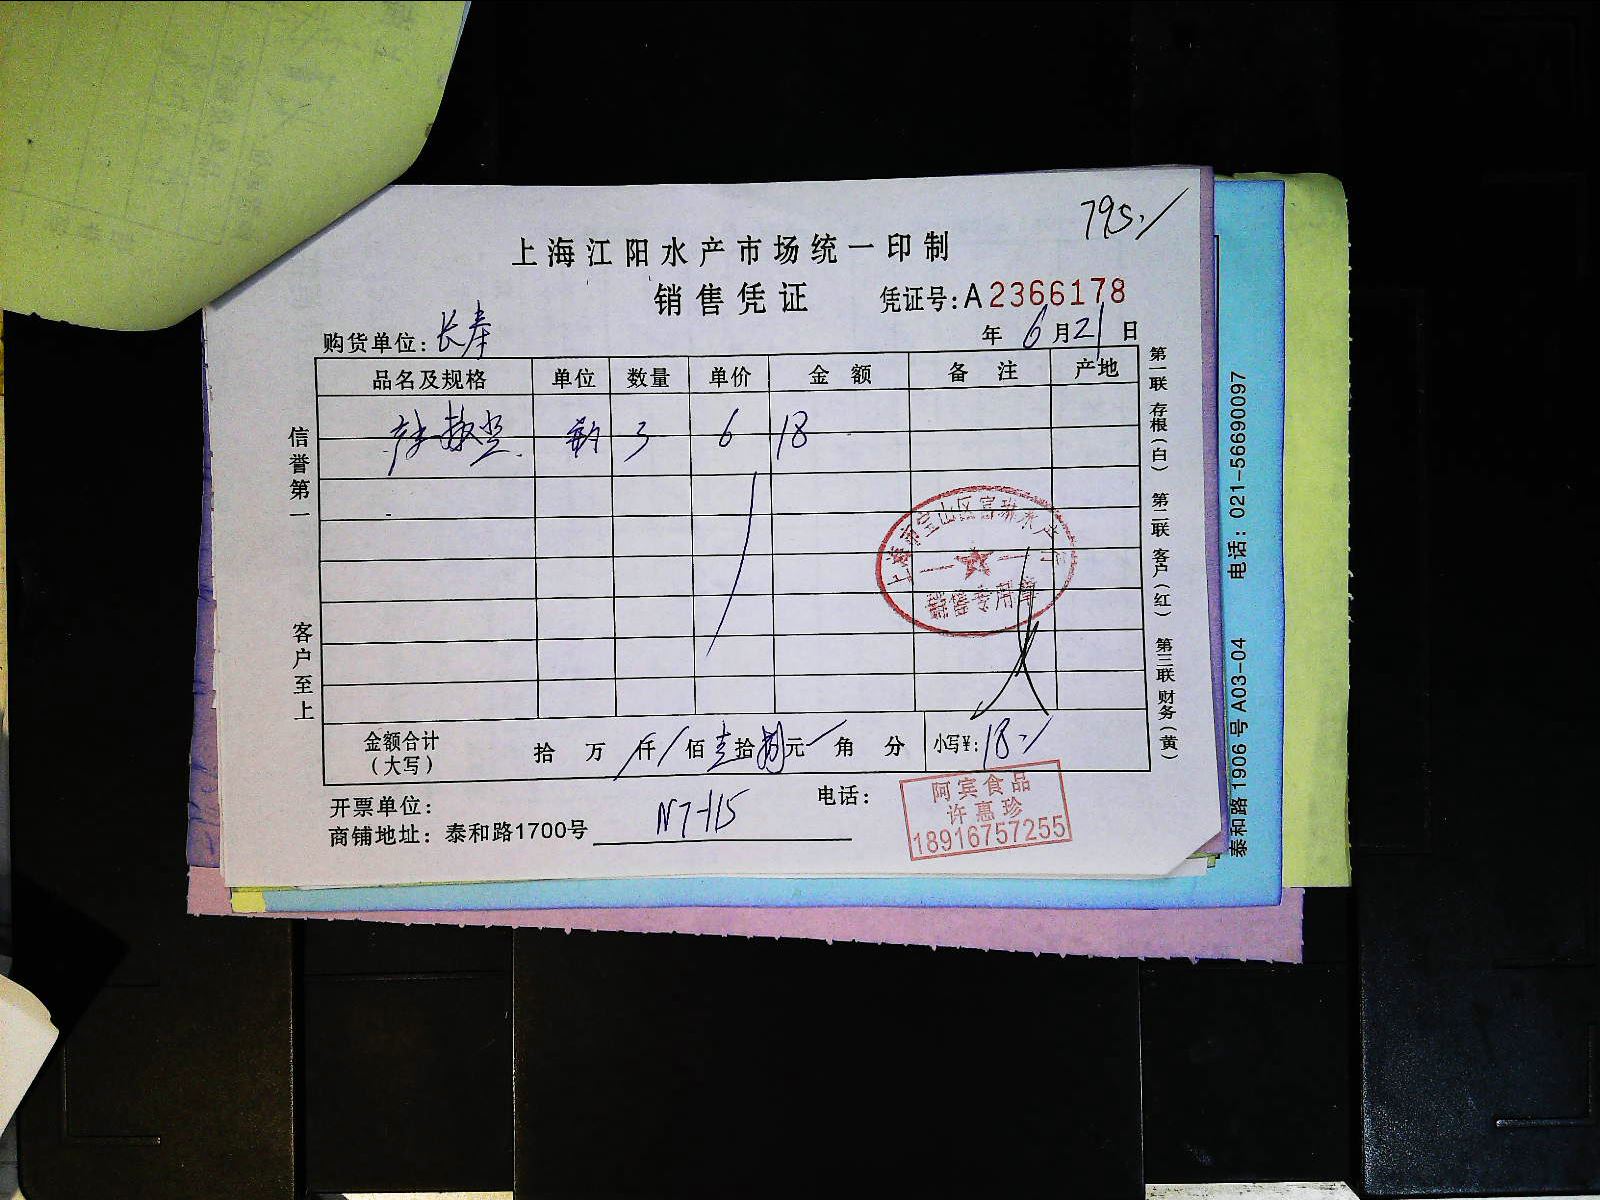 795./
上海江阳水产市场统一印制
销售凭证 凭证号:A2366178
购货单位: 长奉 年 6 月 21 日
品名及规格 单位 数量 单价 金额 备注 产地
3 6 18
信誉第一
客户至上
金额合计（大写） 拾 万 / 仟 / 佰 壹 拾 捌 元 / 角 分 小写¥: 18./
开票单位: 电话:
商铺地址: 泰和路1700号 N7-115
第一联 存根（白） 第二联 客户（红） 第三联 财务（黄）
销售专用章
阿宾食品
许惠珍
18916757255
泰和路 1906 号 A03-04 电话: 021-56690097